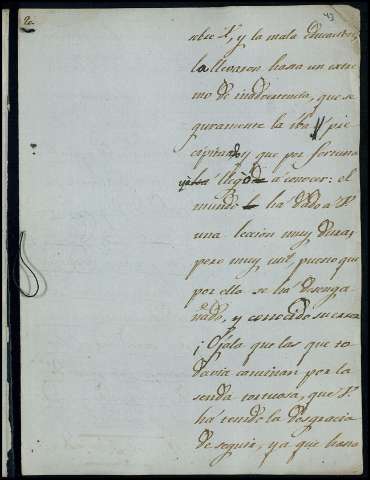 43
nbre V., y la mala educacion,
la llevaron hasta un extre
mo de inadvertencia, que se
guramente la iba á pre
cipitar, y que por fortuna
llegó á conocer: el
mundo le ha dado á V.
una leccion muy dura,
pero muy util, puesto que
por ella se ha desenga
ñado, y conocido su error
¡Ojala que las que to-
davia caminan por la
senda tortuosa, que V.
há tenido la desgracia
de seguir, ya que hasta